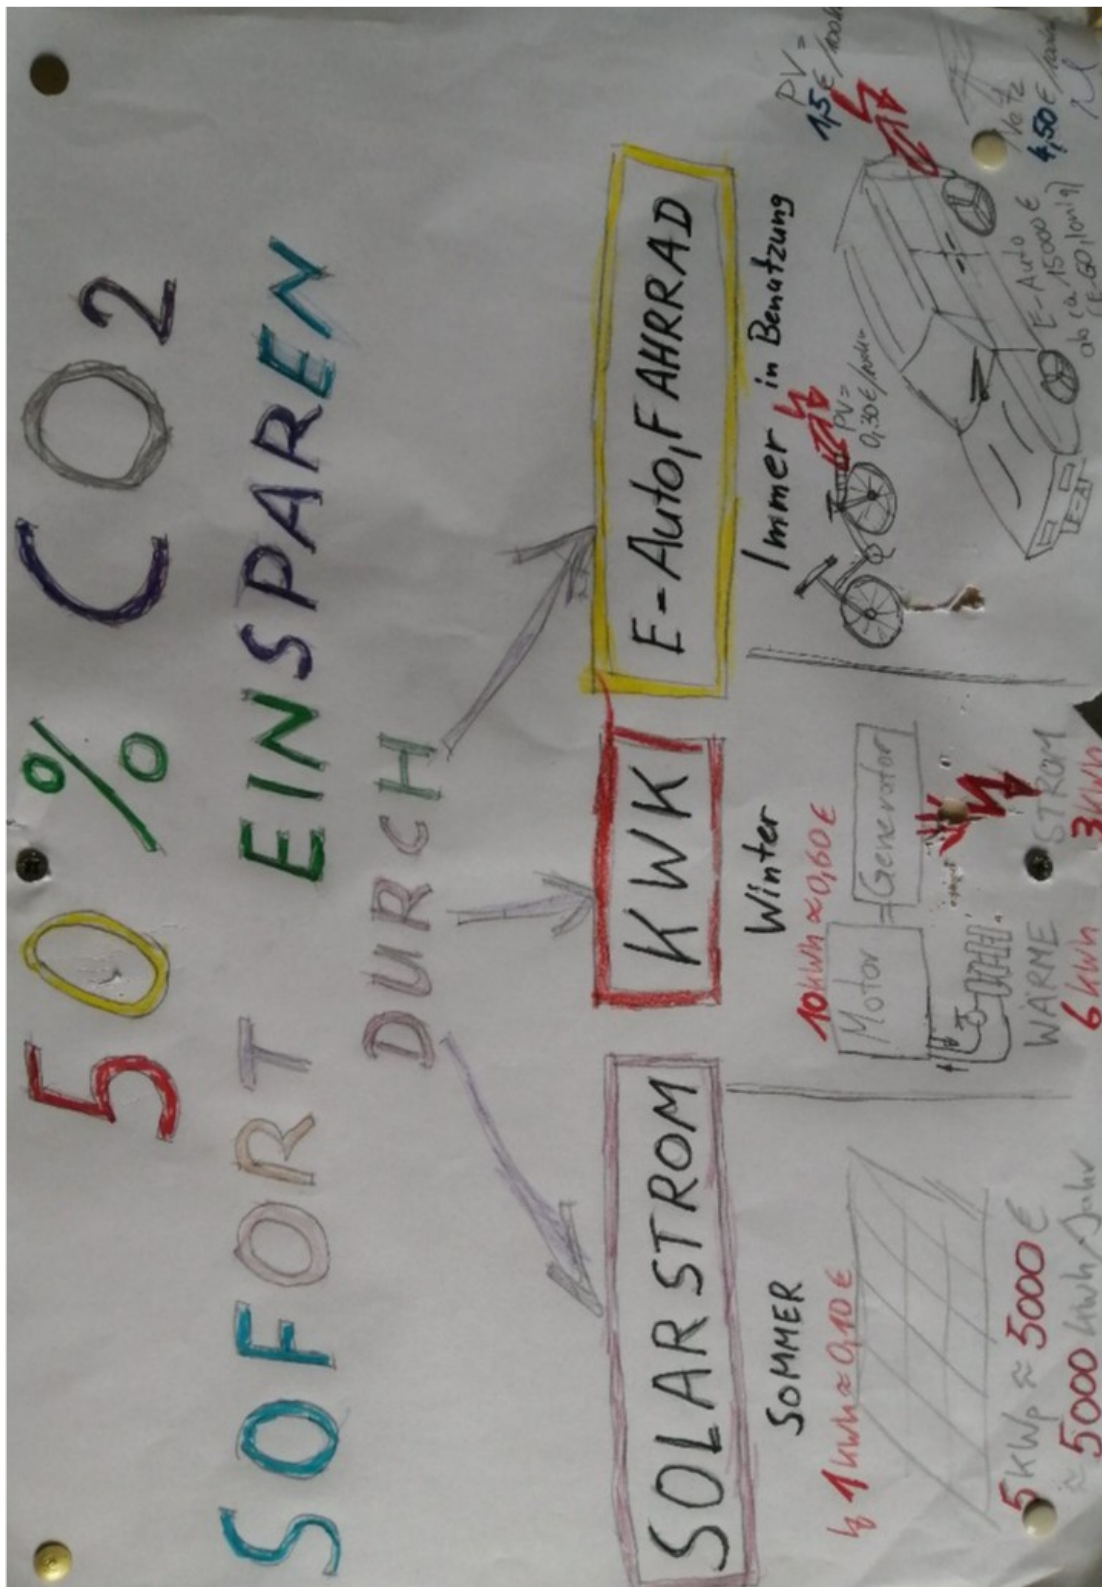 50 % CO2
SOFORT EINSPAREN
DURCH
SOLARSTROM
SOMMER
1 kWh ≈ 0,10 €
5 KWp ≈ 5000 €
≈ 5000 kWh/Jahr
KWK
Winter
10 kWh ≈ 0,60 €
Motor = Generator
WÄRME STROM
6 kWh 3 kWh
E-Auto, FAHRRAD
Immer in Benutzung
PV =
0,30 €/100km
PV =
1,5 €/100k
Netz
4,50 €/100km
E-Auto
ab ca. 15000 €